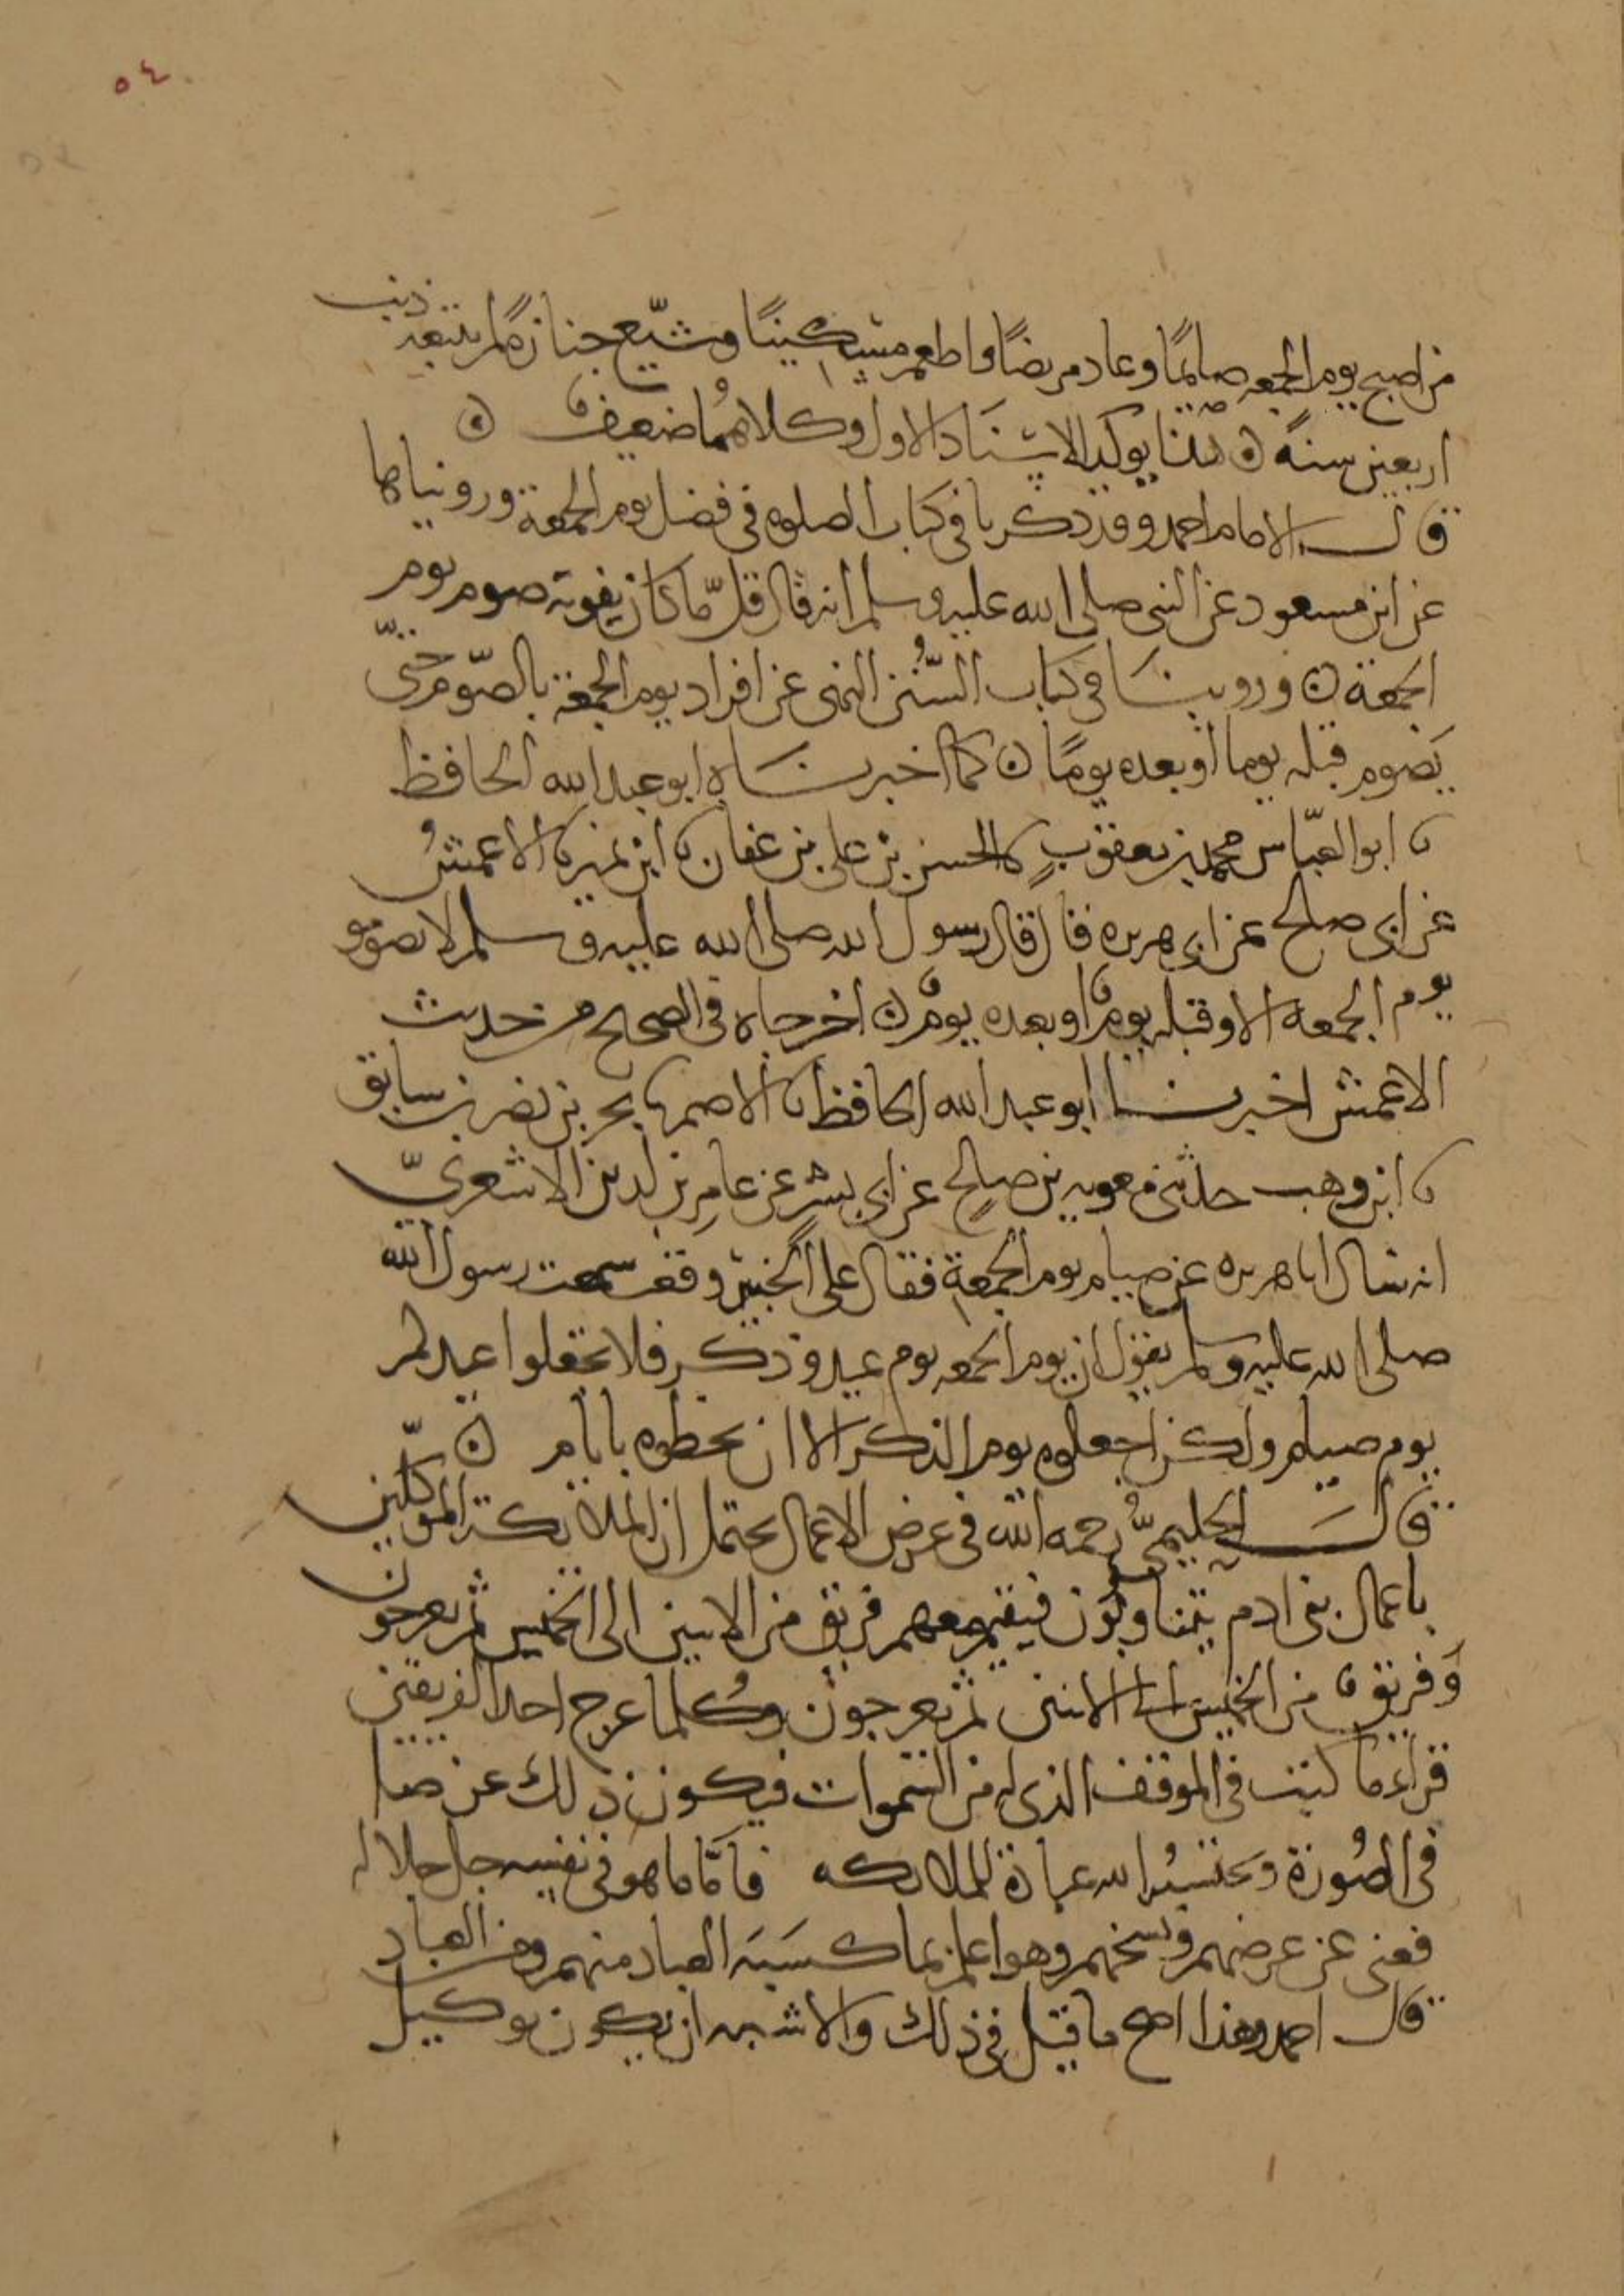 ٥٤
من اصبح يوم الجمعه صايمًا وعاد مريضًا واطعم مسكينًا وشيّع جنازة لم يتبعه ذنب
اربعين سنةً ۞ هذا يوكد الاسناد الاول وكلاهُما ضعيف ۞
قال الامام احمد وقد ذكرنا في كتاب الصلوه في فضل يوم الجمعة وروينا
عن ابن مسعود عن النبى صلى الله عليه وسلم انه قال قلّ ما كان يفوته صوم يوم
الجمعة ۞ وروينا في كتاب السُّنن النهى عن افراد يوم الجمعة بالصّوم حتّى
يَصُوم قبله يوما اوْ بعده يومًا ۞ كما اخبرناه ابو عبد الله الحافظ
نا ابو العبّاس محمد بن يعقوبٍ نا الحسن بن على بن عفان نا ابن نمير نا الاعمشُ
عن ابى صالح عن ابى هريره قال قال رسول الله صلى الله عليه وسلم لا تصومو
يوم الجمعة الا وقبله يومٌ او بعده يومٌ ۞ اخرجاه فى الصحيح من حديث
الاعمش اخبرنا ابو عبد الله الحافظ نا الاصم نا بحر بن نصر بن سابق
نا ابن وهب حدثنى معويه بن صالحٍ عن ابى بشرٍ عن عامِر بن لدين الاشعرىّ
انه سال ابا هريره عن صيام يوم الجمعةِ فقال على الخبير وقعت سمعت رسول الله
صلى الله عليه وسلم يقول ان يوم الجمعه يوم عيد وذكر فلا تجعلوا عيدكم
يوم صيام ولكن اجعلوه يوم الذكر الا ان تخلطوه بايام ۞
قالَ الحليمىُّ رحمه الله فى عرض الاعمال يحتمل ان الملايكة الموكّلين
باعمال بنى ادم يتناوبُون فيقيم معهم فريق من الاثنين الى الخميس ثم يعرجون
وَفريقٌ من الخميس الى الاثنين ثم يعرجون وكُلما عرج احد الفريقين
قراء ما كتب فى الموقف الذى له من السَّموات فيكون ذلك عرضا
فى الصُورة ويحتسبُه الله عبادة للملايكه فاَمّا ما هو فى نفسِه جل جلاله
فغنى عن عرضهم ونسخهم وهو اعلم بما كسَبَه العباد منهم ومن العباد
قال احمد وهذا اصح ما قيل فى ذلك والاشبه ان يكون توكيل